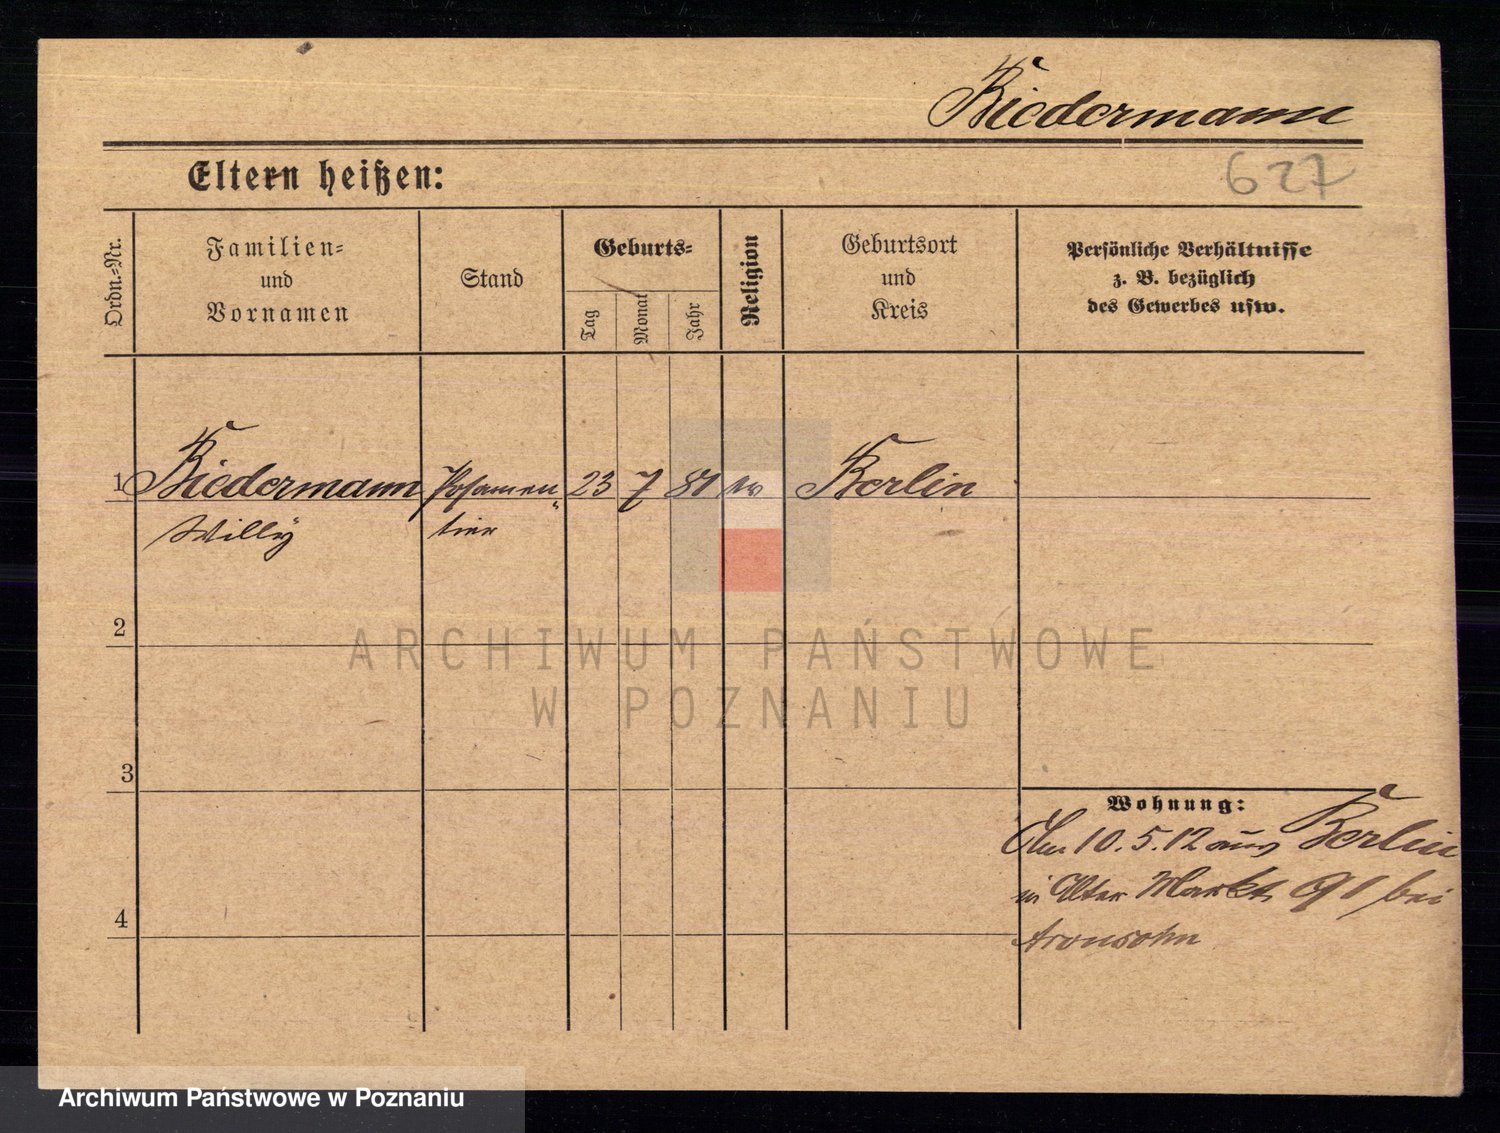 Biedermann
Eltern heißen:
627
Ordn.-Nr.
Familien-
und
Vornamen
Stand
Geburts-
Tag
Monat
Jahr
Religion
Geburtsort
und
Kreis
Persönliche Verhältnisse
z. B. bezüglich
des Gewerbes usw.
1 Biedermann Posamen- 23 7 81 ev Berlin
Willy tier
2
3
4
Wohnung:
10.5.12 aus Berlin
in Alter Markt 91 bei
Aronsohn
ARCHIWUM PAŃSTWOWE
W POZNANIU
Archiwum Państwowe w Poznaniu